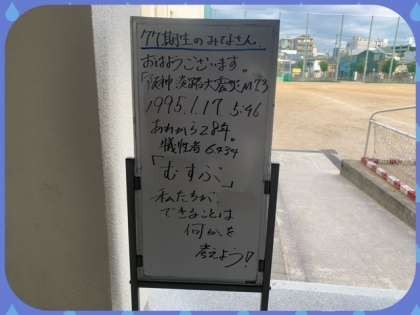 77期生のみなさん、
おはようございます。
「阪神淡路大震災」M7.3
1995.1.17 5:46
あれから28年。
犠牲者6434
「むすぶ」
私たちが、
できることは
何かを
考えよう！